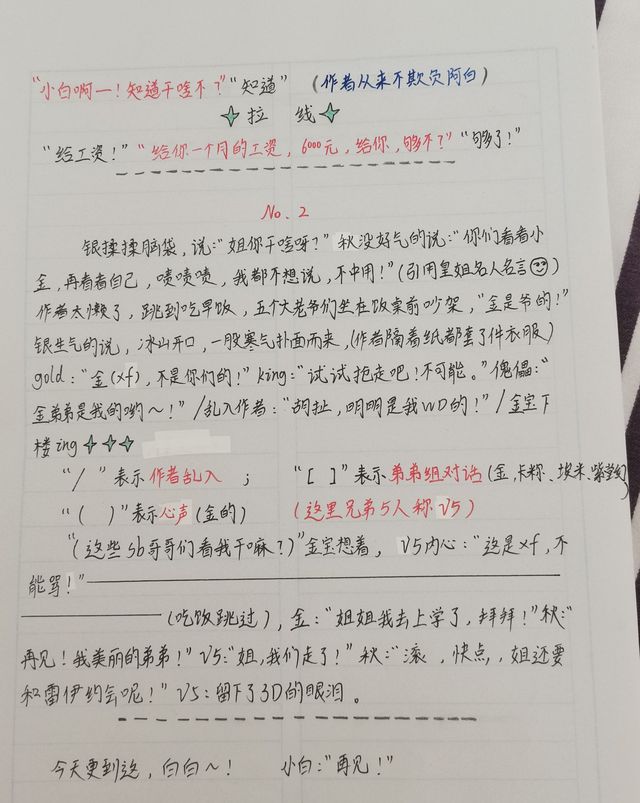 "小白啊一!知道干啥不?""知道" (作者从来不欺负阿白)
拉 线
"给工资!""给你一个月的工资,6000元,给你,够不?""够了!"
No.2
银揉揉脑袋,说:"姐你干啥呀?"秋没好气的说:"你们看看小
金,再看看自己,啧啧啧,我都不想说,不中用!"(引用皇姐名人名言)
作者太懒了,跳到吃早饭,五个大老爷们坐在饭桌前吵架,"金是爷的!"
银生气的说,冰山开口,一股寒气扑面而来,(作者隔着纸都套了件衣服)
gold:"金(xf),不是你们的!"king:"试试抢走吧!不可能。"傀儡:"
金弟弟是我的哟~!"/乱入作者:"胡扯,明明是我VVD的!"/金宝下
楼ing
"/"表示作者乱入; "[ ]"表示弟弟组对话(金,卡称、埃米、紫堂幻)
"( )"表示心声(金的) (这里兄弟5人称V5)
"(这些sb哥哥们看我干嘛?)"金宝想着, V5内心:"这是xf,不
能骂!"
(吃饭跳过),金:"姐姐我去上学了,拜拜!"秋:"
再见!我美丽的弟弟!"V5:"姐,我们走了!"秋:"滚,快点,姐还要
和雷伊约会呢!"V5:留下了3D的眼泪。
今天更到这,白白~! 小白:"再见!"